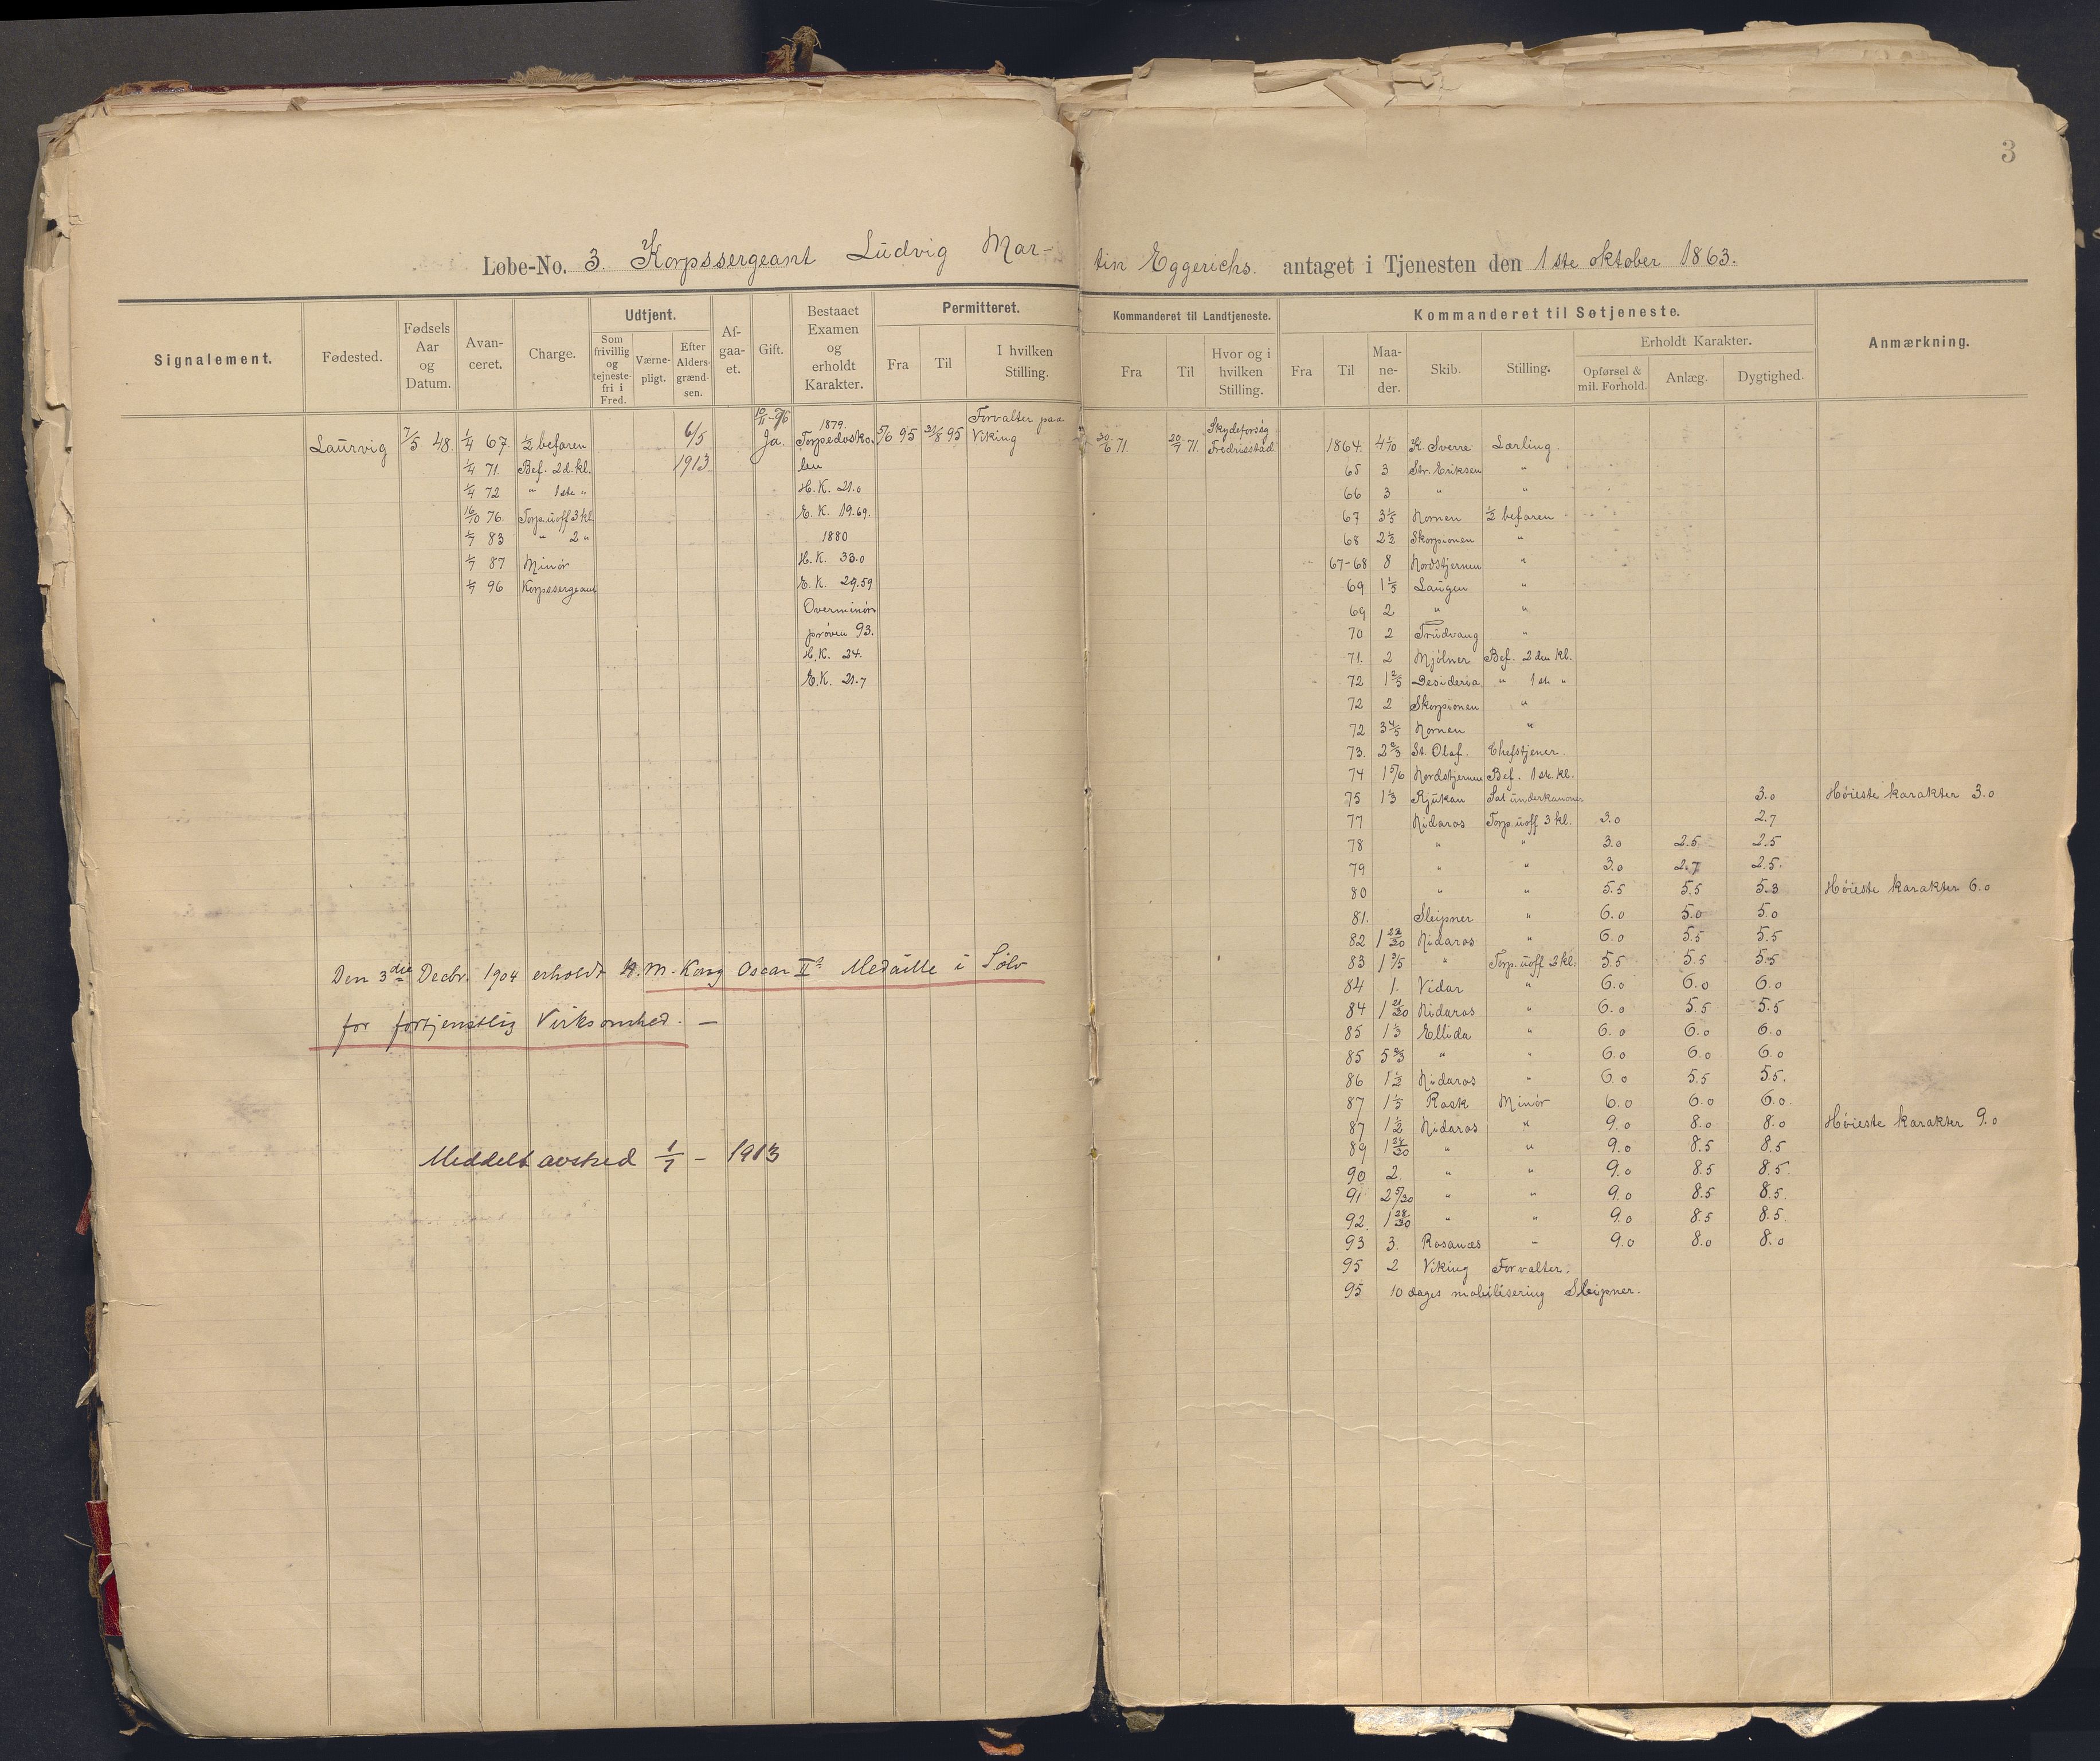 3
Løbe-No. 3. Korpssergeant Ludvig Mar-
tin Eggerichs. antaget i Tjenesten den 1ste oktober 1863.
Signalement.
Fødested.
Fødsels Aar og Datum.
Avan-ceret.
Charge.
Udtjent.
Som frivillig og tejneste-fri i Fred.
Værne-pligt.
Efter Alders-grænd-sen.
Af-gaa-et.
Gift.
Bestaaet Examen og erholdt Karakter.
Permitteret.
Fra
Til
I hvilken Stilling.
Laurvig 7/5 48. 1/4 67. 1/2 befaren
1/4 71. Bef. 2d. kl.
1/4 72 " 1ste "
16/10 76. Torp.uoff 3 kl.
1/7 83 " 2 "
1/7 87 Minør
1/7 96 Korpssergeant
6/5
1913
10/11-76
Ja.
1879.
Torpedosko-
len
H.K. 21.0
E.K. 19.69.
1880
H.K. 33.0
E.K. 29.59
Overminør
prøven 93.
H.K. 24.
E.K. 21.7
5/6 95 31/8 95 Forvalter paa
Viking
Den 3die Decbr. 1904 erholdt H.M. Kong Oscar IIs Medaille i Sølv
for fortjenstlig Virksomhed. —
Meddelt avsked 1/7 - 1913
Kommanderet til Landtjeneste.
Fra
Til
Hvor og i hvilken Stilling.
30/6 71. 20/9 71. Skydeforsøg
Fredriksstad
Kommanderet til Søtjeneste.
Fra
Til
Maa-ne-der.
Skib.
Stilling.
Erholdt Karakter.
Opførsel & mil. Forhold.
Anlæg.
Dygtighed.
Anmærkning.
1864. 4 1/10 K. Sverre Lærling.
65 3 Str. Eriksen "
66 3 " "
67 3 1/5 Nornen 1/2 befaren
68 2 1/2 Skorpionen "
67-68 8 Nordstjernen "
69 1 1/5 Laugen "
69 2 " "
70 2 Trudvang "
71. 2 Mjølner Bef. 2den kl.
72 1 2/5 Desideria " 1ste "
72 2 Skorpionen "
72 3 4/5 Nornen "
73. 2 2/3 St. Olaf. Chefstjener.
74 1 5/6 Nordstjernen Bef. 1ste. kl.
75 1 1/3 Rjukan Sat underkanoner 3.0 Høieste karakter 3.0
77 Nidaros Torp.uoff 3 kl. 3.0 2.7
78 " " 3.0 2.5 2.5
79 " " 3.0 2.7 2.5.
80 " " 5.5 5.5 5.3 Høieste karakter 6.0
81. Sleipner " 6.0 5.0 5.0
82 1 22/30 Nidaros " 6.0 5.5 5.5
83 1 3/5 " Torp.uoff 2 kl. 5.5 5.5 5.5
84 1. Vidar " 6.0 6.0 6.0
84 1 21/30 Nidaros " 6.0 5.5 5.5
85 1 1/3 Ellida " 6.0 6.0 6.0
85 5 2/3 " " 6.0 6.0 6.0
86 1 1/2 Nidaros " 6.0 5.5 5.5.
87 1 1/5 Rask Minør 6.0 6.0 6.0.
87 1 1/2 Nidaros " 9.0 8.0 8.0 Høieste karakter 9.0
89 1 28/30 " " 9.0 8.5 8.5
90 2. " " 9.0 8.5 8.5
91 2 5/30 " " 9.0 8.5 8.5.
92. 1 28/30 " " 9.0 8.5 8.5.
93 3. Rosanæs " 9.0 8.0 8.0
95 2 Viking Forvalter.
95 10 dages mobilisering Sleipner.